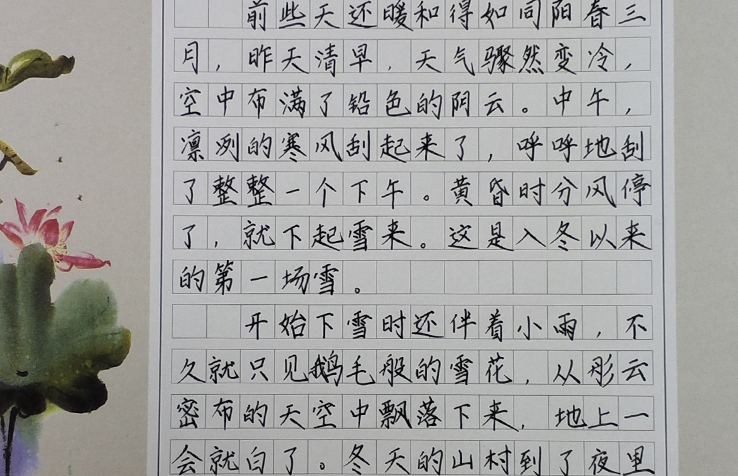 前些天还暖和得如同阳春三
月，昨天清早，天气骤然变冷，
空中布满了铅色的阴云。中午，
凛冽的寒风刮起来了，呼呼地刮
了整整一个下午。黄昏时分风停
了，就下起雪来。这是入冬以来
的第一场雪。
开始下雪时还伴着小雨，不
久就只见鹅毛般的雪花，从彤云
密布的天空中飘落下来，地上一
会就白了。冬天的山村到了夜里